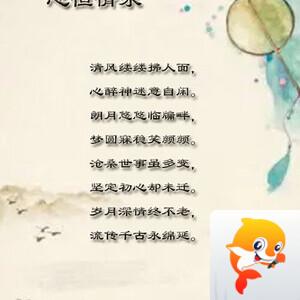 心恒情永
清风缕缕拂人面，
心醉神迷意自闲。
朗月悠悠临牖畔，
梦圆寐稳笑颜颜。
沧桑世事虽多变，
坚定初心却未迁。
岁月深情终不老，
流传千古永绵延。